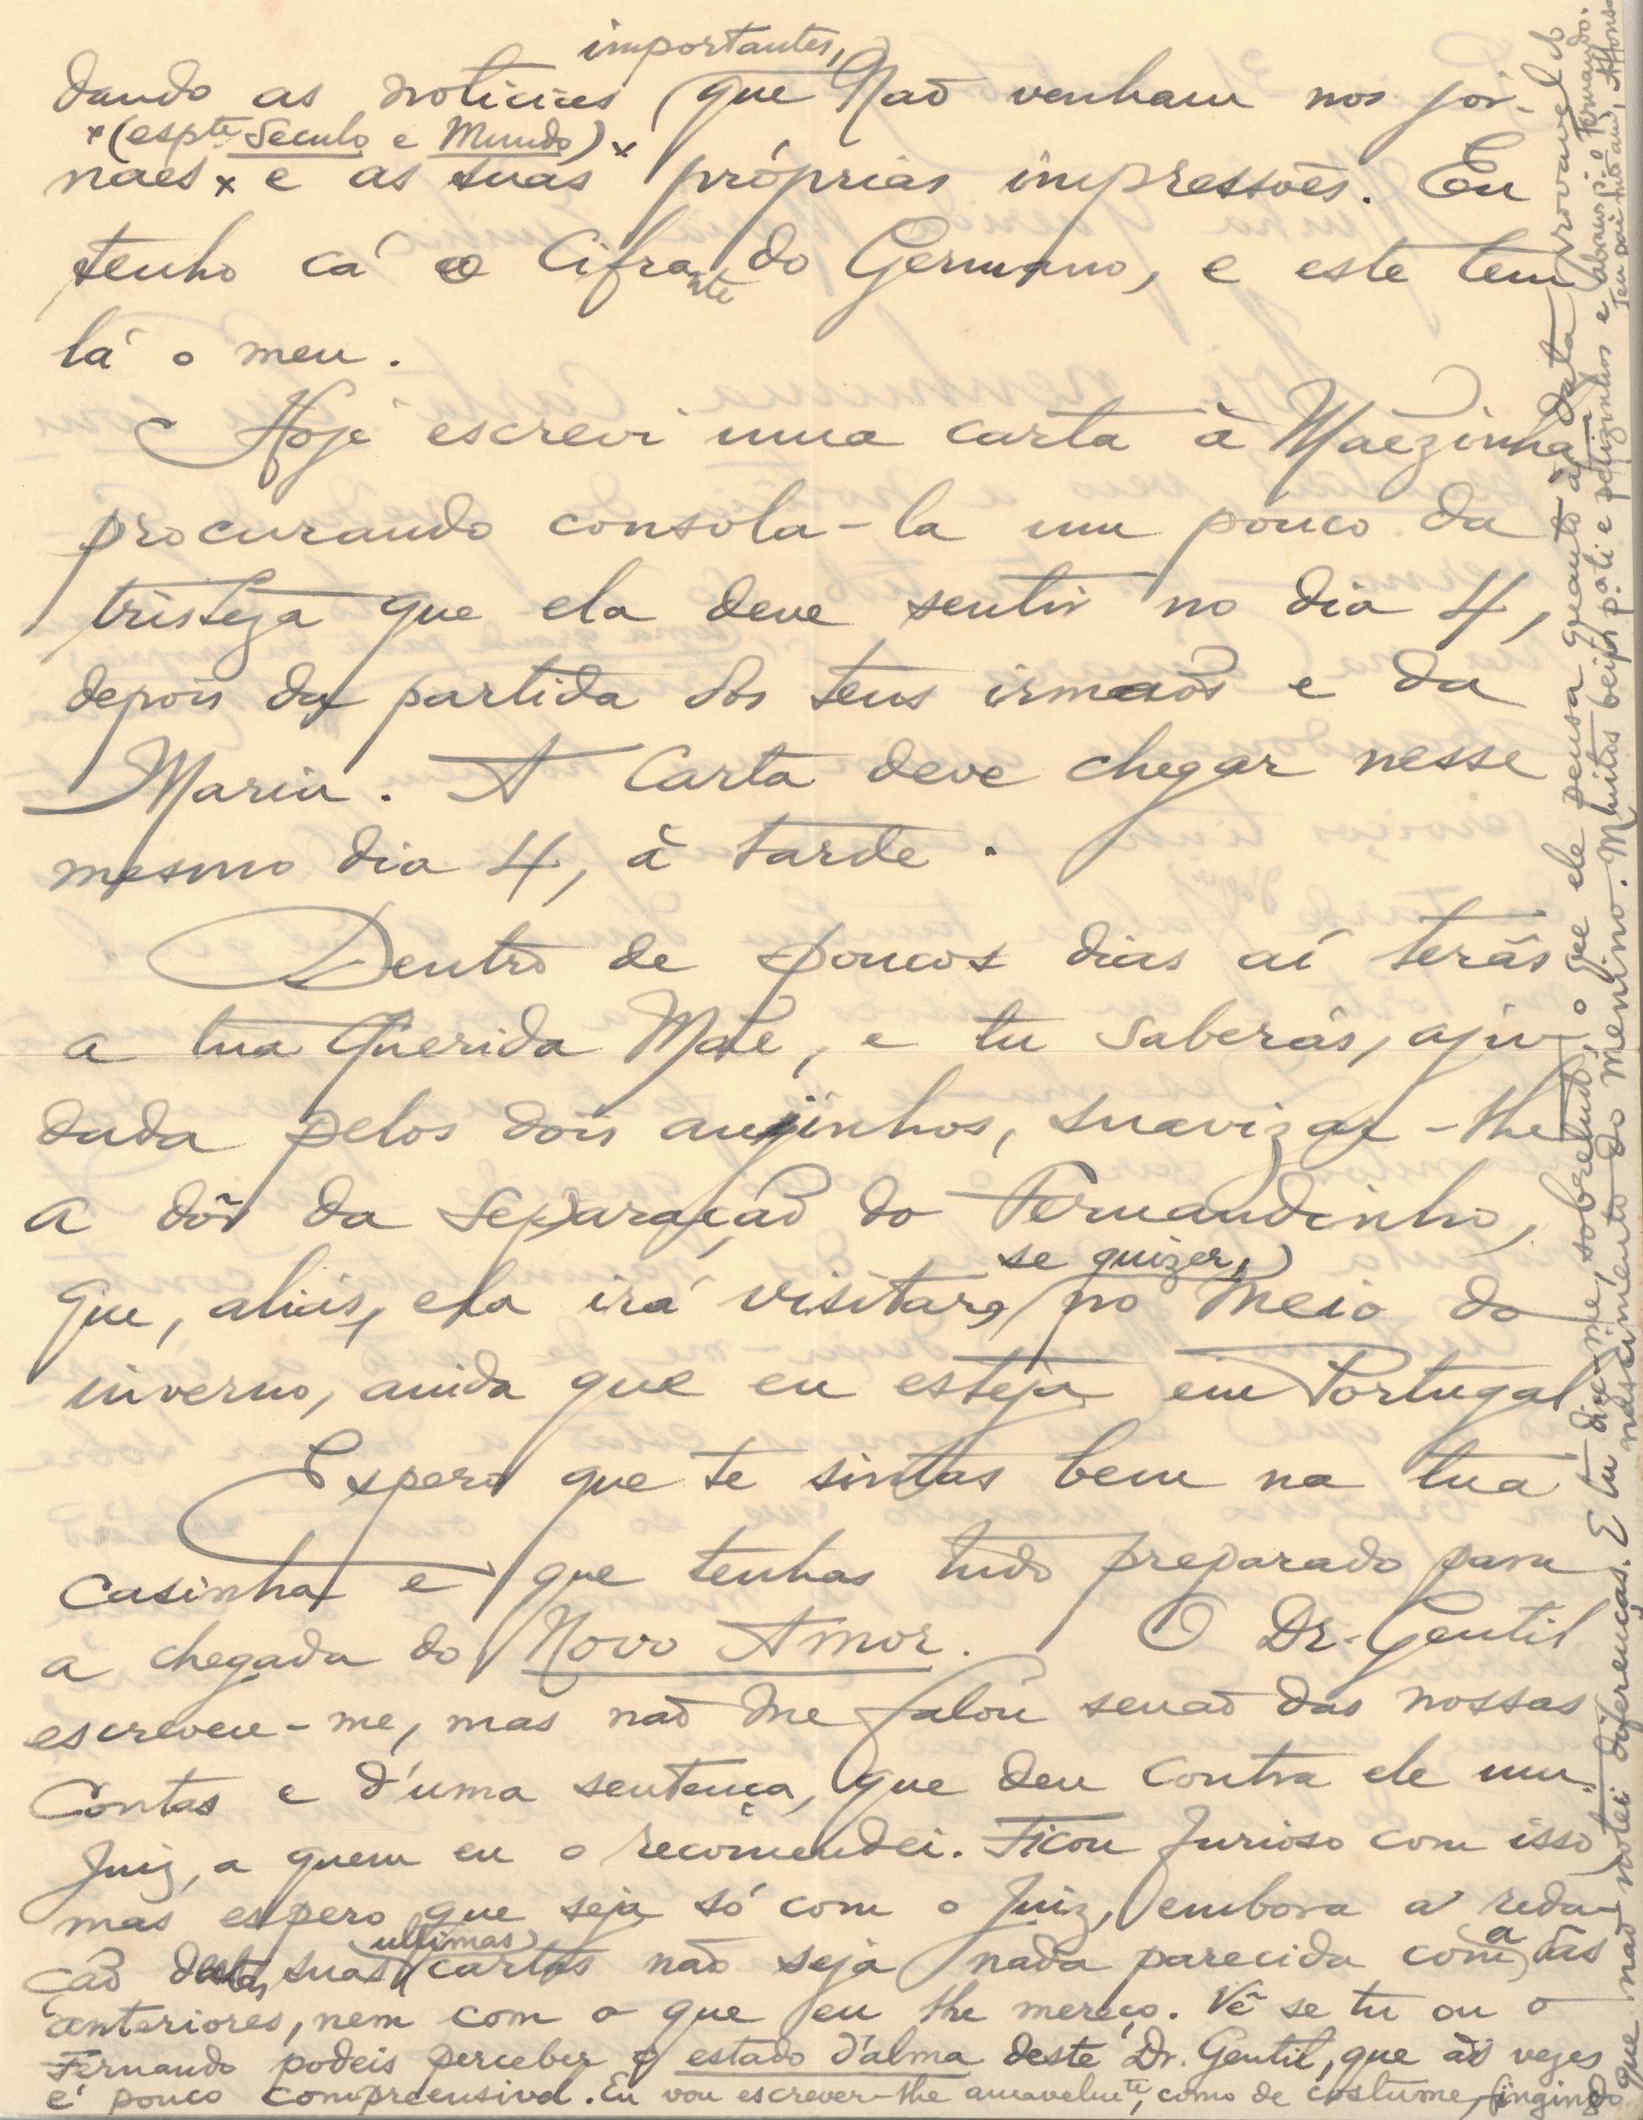 importantes,
dando as noticias que não venham nos jor-
x (espte Seculo e Mundo) x
naes x e as suas próprias impressões. Eu
tenho cá o Cifrante do Germano, e este tem
lá o meu.
Hoje escrevi uma carta à Mãezinha
procurando consola-la um pouco da
tristeza que ela deve sentir no dia 4,
depois da partida dos teus irmãos e da
Maria. A carta deve chegar nesse
mesmo dia 4, à tarde.
Dentro de poucos dias aí terás
a tua Querida Mãe, e tu saberás, aju-
dada pelos dois anjinhos, suavizar-lhe
a dôr da separação do Fernandinho,
se quizer,
que, aliás, ela irá visitar, no meio do
inverno, ainda que eu esteja em Portugal
Espero que te sintas bem na tua
casinha e que tenhas tudo preparado para
a chegada do Novo Amor. O Dr. Gentil
escreveu-me, mas não me falou senão das nossas
Contas e d'uma sentença, que deu contra ele um
Juiz, a quem eu o recomendei. Ficou furioso com isso
mas espero que seja só com o Juiz, embora a reda-
ultimas a
ção destas suas cartas não seja nada parecida com as
anteriores, nem com o que eu lhe mereço. Vê se tu ou o
Fernando podeis perceber o estado d'alma deste Dr. Gentil, que às vezes
é pouco compreensivel. Eu vou escrever-lhe amavelmte, como de costume, fingindo
que não notei diferenças. E tu dize-me, sobretudo, o que ele pensa quanto à data provavel do
nascimento do menino. Muitos beijos p.a ti e petizinhos e abraços p.o Fernando.
Teu pai mto am.o Affonso